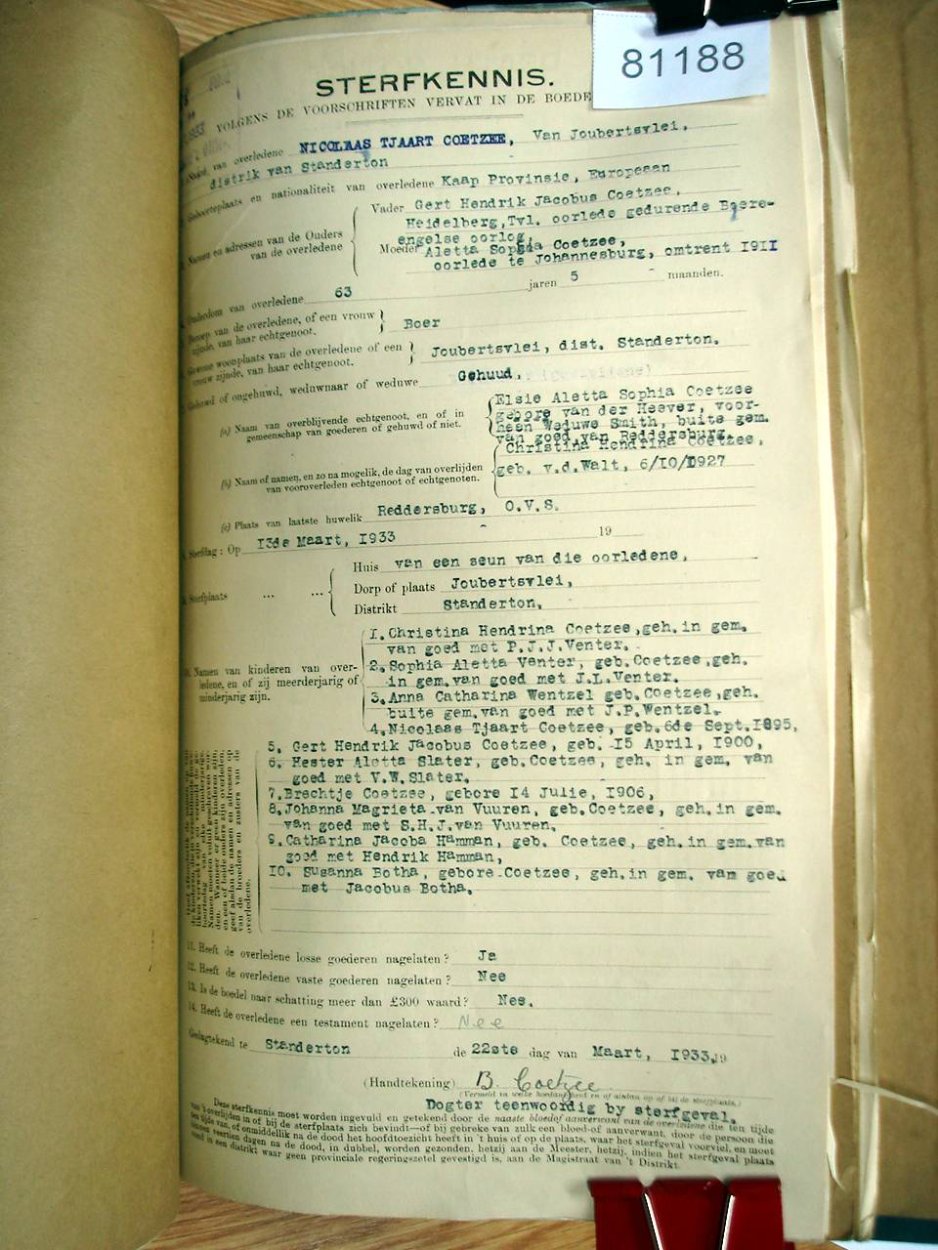 81188
STERFKENNIS.
VOLGENS DE VOORSCHRIFTEN VERVAT IN DE BOEDE
van overledene NICOLAAS TJAART COETZEE, Van Joubertsvlei,
distrik van Standerton
Geboorteplaats en nationaliteit van overledene Kaap Provinsie, Europeaan
Namen en adressen van de Ouders van de overledene
Vader Gert Hendrik Jacobus Coetzee,
Heidelberg, Tvl. oorlede gedurende Boere-
engelse oorlog,
Moeder Aletta Sophia Coetzee,
oorlede te Johannesburg, omtrent 1911
Ouderdom van overledene 63 jaren 5 maanden.
Beroep van de overledene, of een vrouw
zijnde, van haar echtgenoot. Boer
Gewone woonplaats van de overledene of een
vrouw zijnde, van haar echtgenoot. Joubertsvlei, dist. Standerton.
Gehuwd of ongehuwd, weduwnaar of weduwe Gehuud.
(a) Naam van overblijvende echtgenoot, en of in
gemeenschap van goederen of gehuwd of niet.
Elsie Aletta Sophia Coetzee
gebore van der Heever, voor-
heen Weduwe Smith, buite gem.
van goed van Reddersburg.
(b) Naam of namen, en zo na mogelik, de dag van overlijden
van vooroverleden echtgenoot of echtgenoten.
Christina Hendrina Coetzee,
geb. v.d.Walt, 6/10/1927
(c) Plaats van laatste huwelik Reddersburg, O.V.S.
Sterfdag: Op 13de Maart, 1933 19
Sterfplaats ... ...
Huis van een seun van die oorledene,
Dorp of plaats Joubertsvlei,
Distrikt Standerton.
Namen van kinderen van over-
ledene, en of zij meerderjarig of
minderjarig zijn.
1. Christina Hendrina Coetzee, geh. in gem.
van goed met P.J.J.Venter.
2. Sophia Aletta Venter, geb. Coetzee, geh.
in gem. van goed met J.L.Venter.
3. Anna Catharina Wentzel geb. Coetzee, geh.
buite gem. van goed met J.P.Wentzel.
4. Nicolaas Tjaart Coetzee, geb. 6de Sept. 1895,
5. Gert Hendrik Jacobus Coetzee, geb. 15 April, 1900,
6. Hester Aletta Slater, geb. Coetzee, geh. in gem. van
goed met V.W.Slater.
7. Brechtje Coetzee, gebore 14 Julie, 1906,
8. Johanna Magrieta van Vuuren, geb. Coetzee, geh. in gem.
van goed met S.H.J.van Vuuren.
9. Catharina Jacoba Hamman, geb. Coetzee, geh. in gem. van
goed met Hendrik Hamman,
10. Susanna Botha, gebore Coetzee, geh. in gem. van goed
met Jacobus Botha.
11. Heeft de overledene losse goederen nagelaten? Ja
12. Heeft de overledene vaste goederen nagelaten? Nee
13. Is de boedel naar schatting meer dan £300 waard? Nee.
14. Heeft de overledene een testament nagelaten? Nee
Gedagtekend te Standerton de 22ste dag van Maart, 1933. 19
(Handtekening) B. Coetzee
Dogter teenwoordig by sterfgeval.
Deze sterfkennis moet worden ingevuld en getekend door de naaste bloedof aanverwant van de overledene die ten tijde
van 't overlijden in of bij de sterfplaats zich bevindt—of bij gebreke van zulk een bloed-of aanverwant, door de persoon die
ten tijde van, of onmiddellik na de dood het hoofdtoezicht heeft in 't huis of op de plaats, waar het sterfgeval voorviel, en moet
binnen veertien dagen na de dood, in dubbel, worden gezonden, hetzij aan de Meester, hetzij, indien het sterfgeval plaats
vond in een distrikt waar geen provinciale regeringszetel gevestigd is, aan de Magistraat van 't Distrikt.